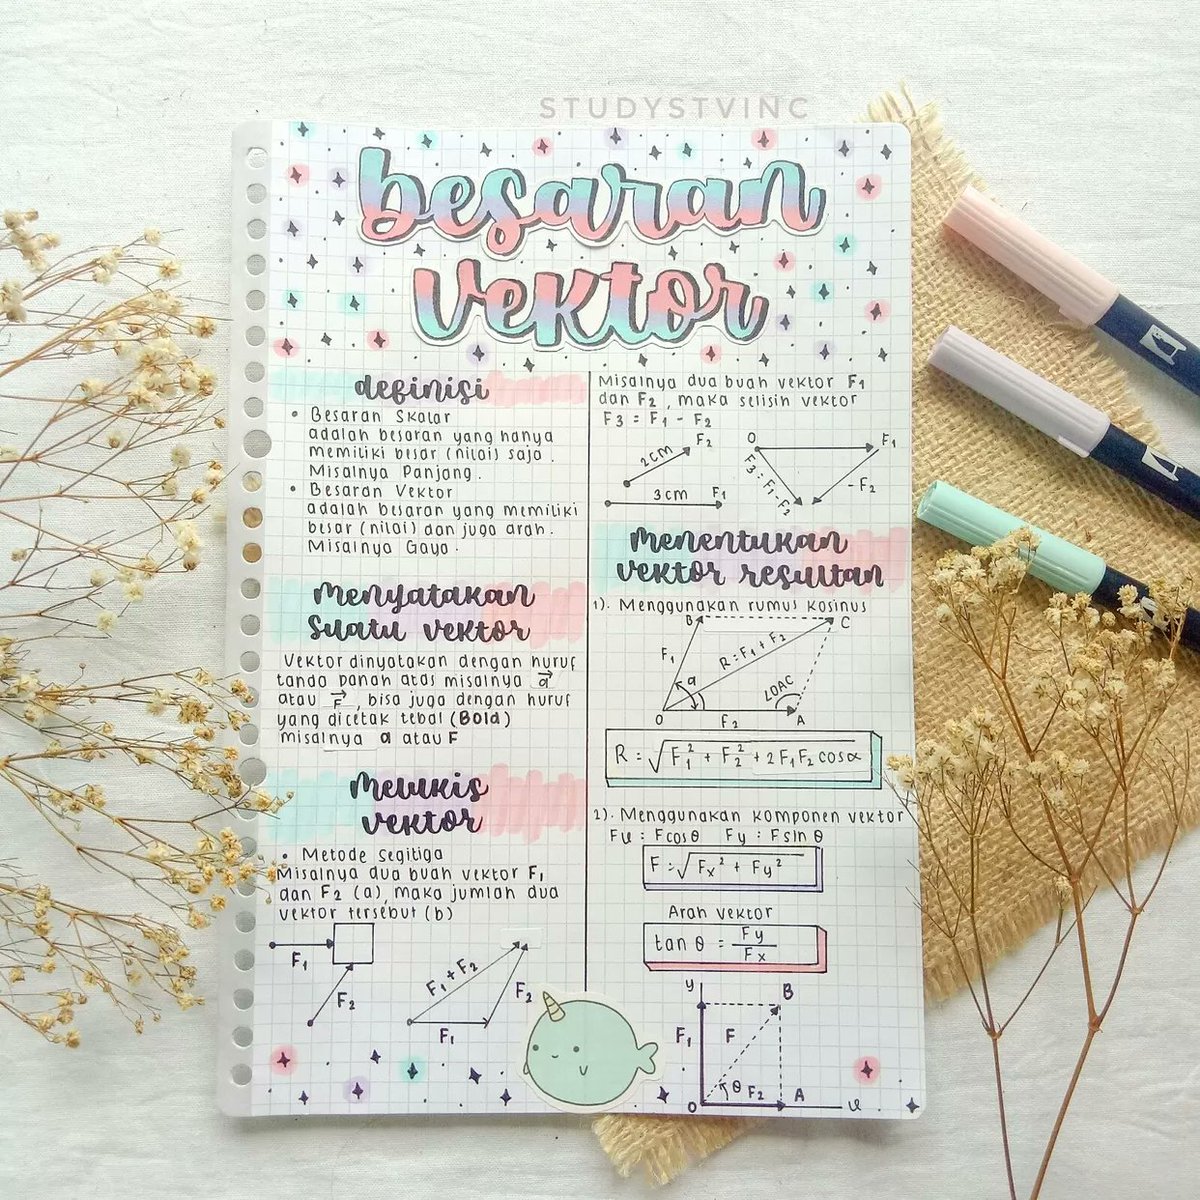 STUDYSTVINC
besaran
vektor
definisi
• Besaran Skalar
adalah besaran yang hanya
memiliki besar (nilai) saja.
Misalnya Panjang.
• Besaran Vektor
adalah besaran yang memiliki
besar (nilai) dan juga arah.
Misalnya Gaya.
Menyatakan
suatu vektor
Vektor dinyatakan dengan huruf
tanda panah atas misalnya a→
atau F→, bisa juga dengan huruf
yang dicetak tebal (Bold)
misalnya a atau F
Melukis
vektor
• Metode Segitiga
Misalnya dua buah vektor F₁
dan F₂ (a), maka jumlah dua
vektor tersebut (b)
F₁
F₂
F₁ + F₂
F₂
F₁
Misalnya dua buah vektor F₁
dan F₂, maka selisih vektor
F3 = F₁ - F₂
2cm F₂
3cm F₁
O F₁
F3 = F₁ - F₂
-F₂
Menentukan
vektor resultan
1). Menggunakan rumus kosinus
B C
F₁ R = F₁ + F₂
α ∠OAC
O F₂ A
R = √F₁² + F₂² + 2F₁F₂ cosα
2). Menggunakan komponen vektor
Fx = Fcosθ Fy = Fsin θ
F = √Fx² + Fy²
Arah vektor
tan θ = Fy/Fx
y B
F₁ F
θ F₂ A
O x